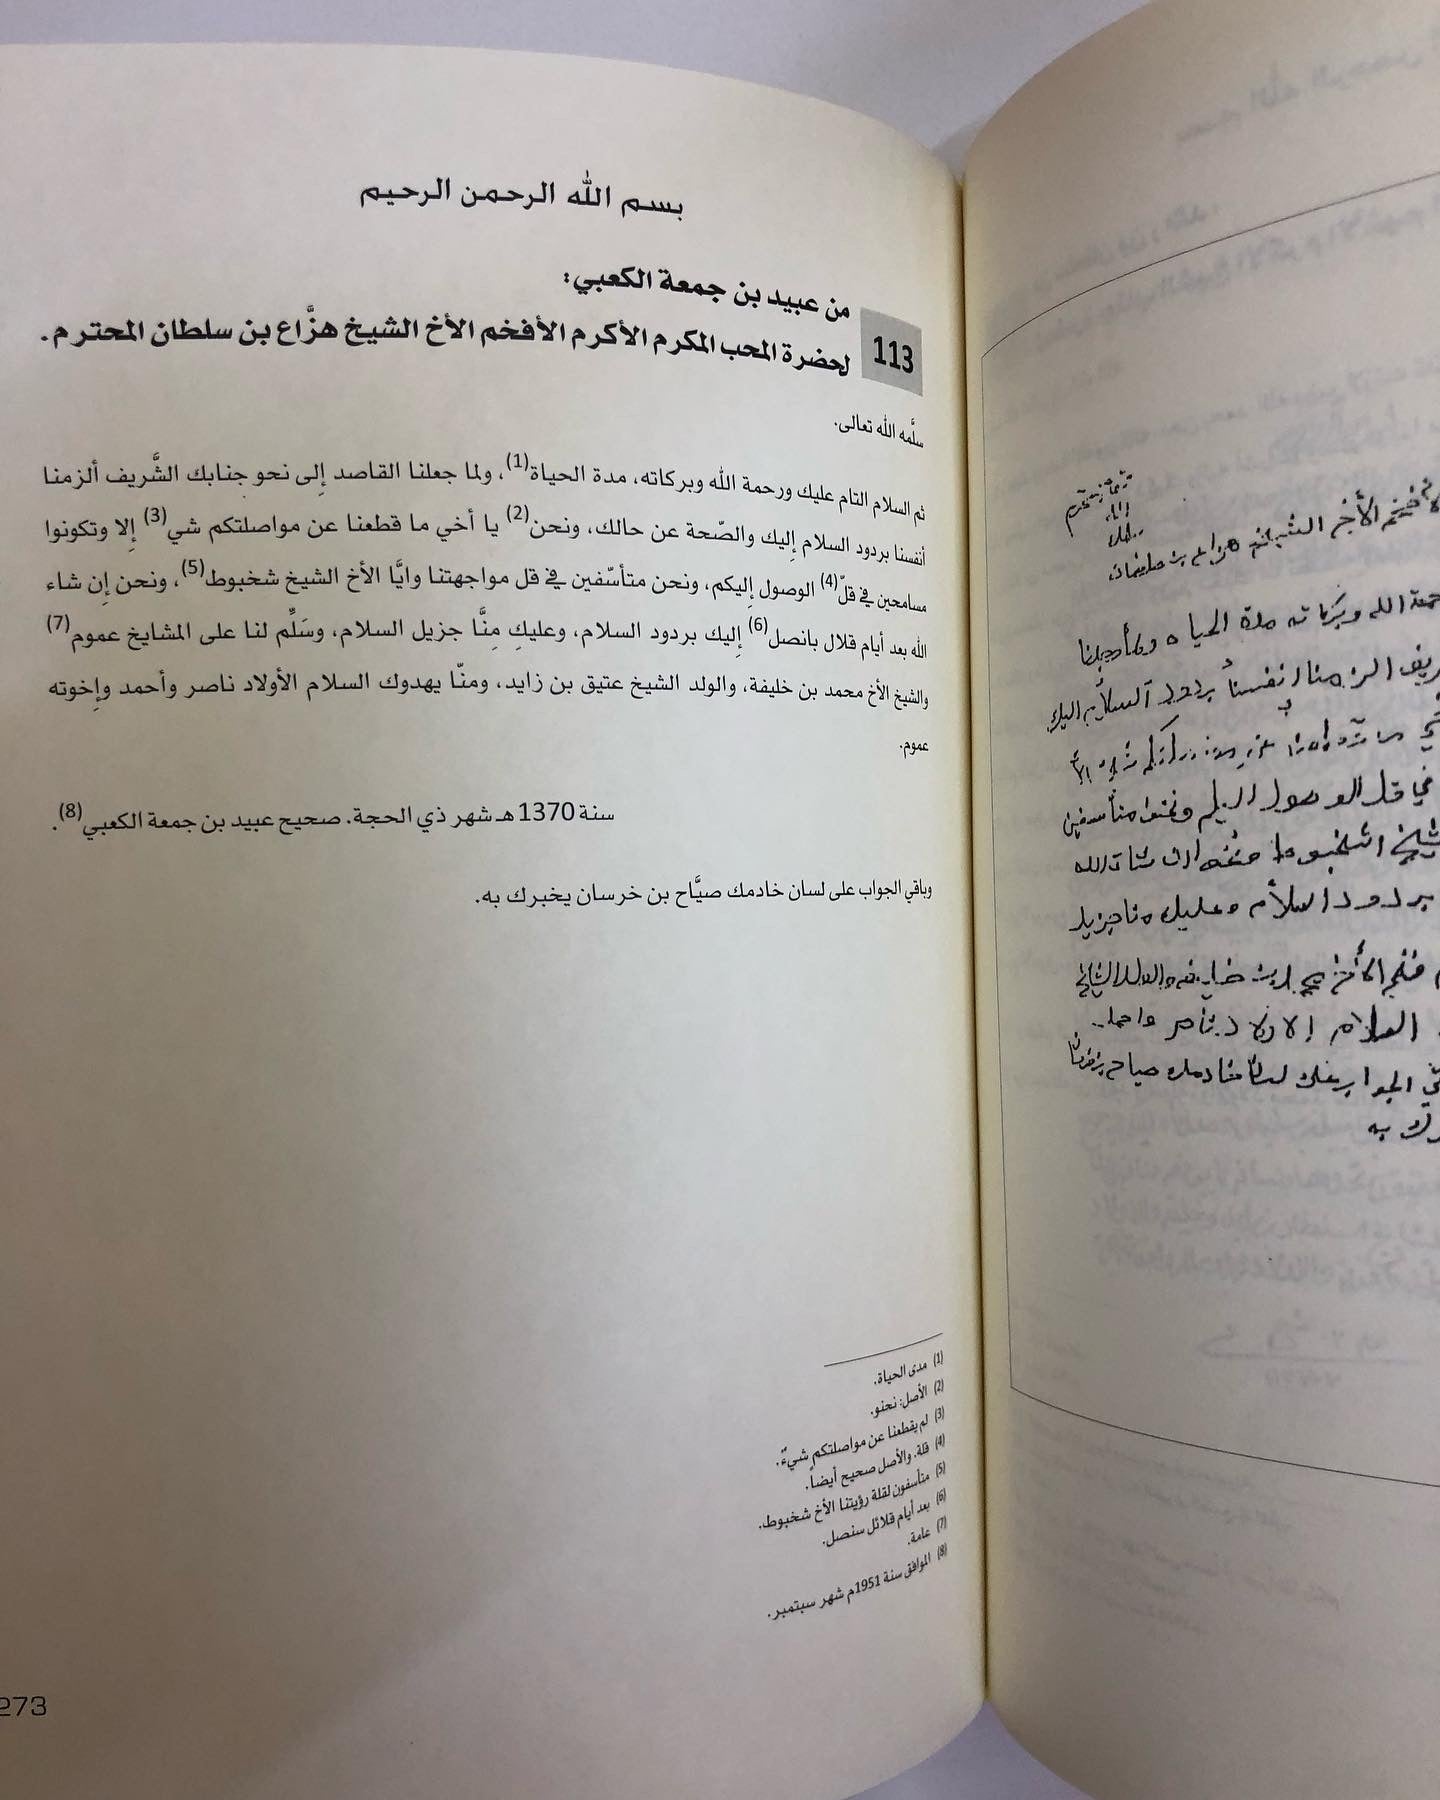 بسم الله الرحمن الرحيم
113
من عبيد بن جمعة الكعبي:
لحضرة المحب المكرم الأكرم الأفخم الأخ الشيخ هزَّاع بن سلطان المحترم.
سلَّمه الله تعالى.
ثم السلام التام عليك ورحمة الله وبركاته، مدة الحياة(1)، ولما جعلنا القاصد إِلى نحو جنابك الشَّريف ألزمنا
أنفسنا بردود السلام إِليك والصّحة عن حالك، ونحن(2) يا أخي ما قطعنا عن مواصلتكم شي(3) إِلا وتكونوا
مسامحين في قلّ(4) الوصول إِليكم، ونحن متأسّفين في قل مواجهتنا وايَّا الأخ الشيخ شخبوط(5)، ونحن إِن شاء
الله بعد أيام قلال بانصل(6) إِليك بردود السلام، وعليكِ مِنَّا جزيل السلام، وسَلِّم لنا على المشايخ عموم(7)
والشيخ الأخ محمد بن خليفة، والولد الشيخ عتيق بن زايد، ومنّا يهدوك السلام الأولاد ناصر وأحمد وإِخوته
عموم.
سنة 1370 هـ شهر ذي الحجة. صحيح عبيد بن جمعة الكعبي(8).
وباقي الجواب على لسان خادمك صيَّاح بن خرسان يخبرك به.
(1) مدى الحياة.
(2) الأصل: نحنو.
(3) لم يقطعنا عن مواصلتكم شيءٌ.
(4) قلة. والأصل صحيح أيضاً.
(5) متأسفون لقلة رؤيتنا الأخ شخبوط.
(6) بعد أيام قلائل سنصل.
(7) عامة.
(8) الموافق سنة 1951م شهر سبتمبر.
273
الأخ الشيخ هزاع بن سلطان
الله
سلمه
وبركاته مدة الحياة ولما جعلنا
الزمنا انفسنا بردود السلام اليك
في قل الوصول اليكم ونحنو متأسفين
ان شاء الله
بردود السلام وعليك منا جزيل
الأخ محمد بن خليفه والولد الشيخ
السلام الاولاد ناصر واحمد
الجواب على لسان خادمك صياح بن خرسان
به